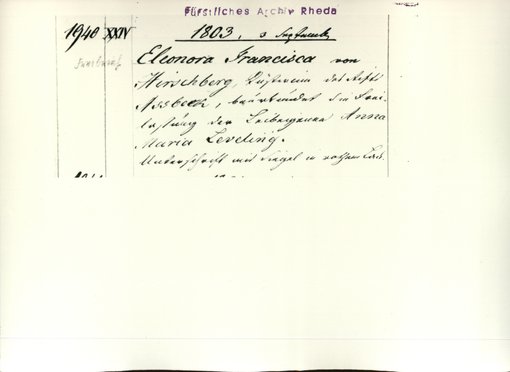 Fürstliches Archiv Rheda
1948 XXIV 1803, 3 September
Eleonora Francisca von
Hirschberg, Küsterin des Stifts
Assbeck, beurkundet die Frei-
lassung der Leibeigenen Anna
Maria Leveling.
Unterschrift und Siegel in rothem Lack.